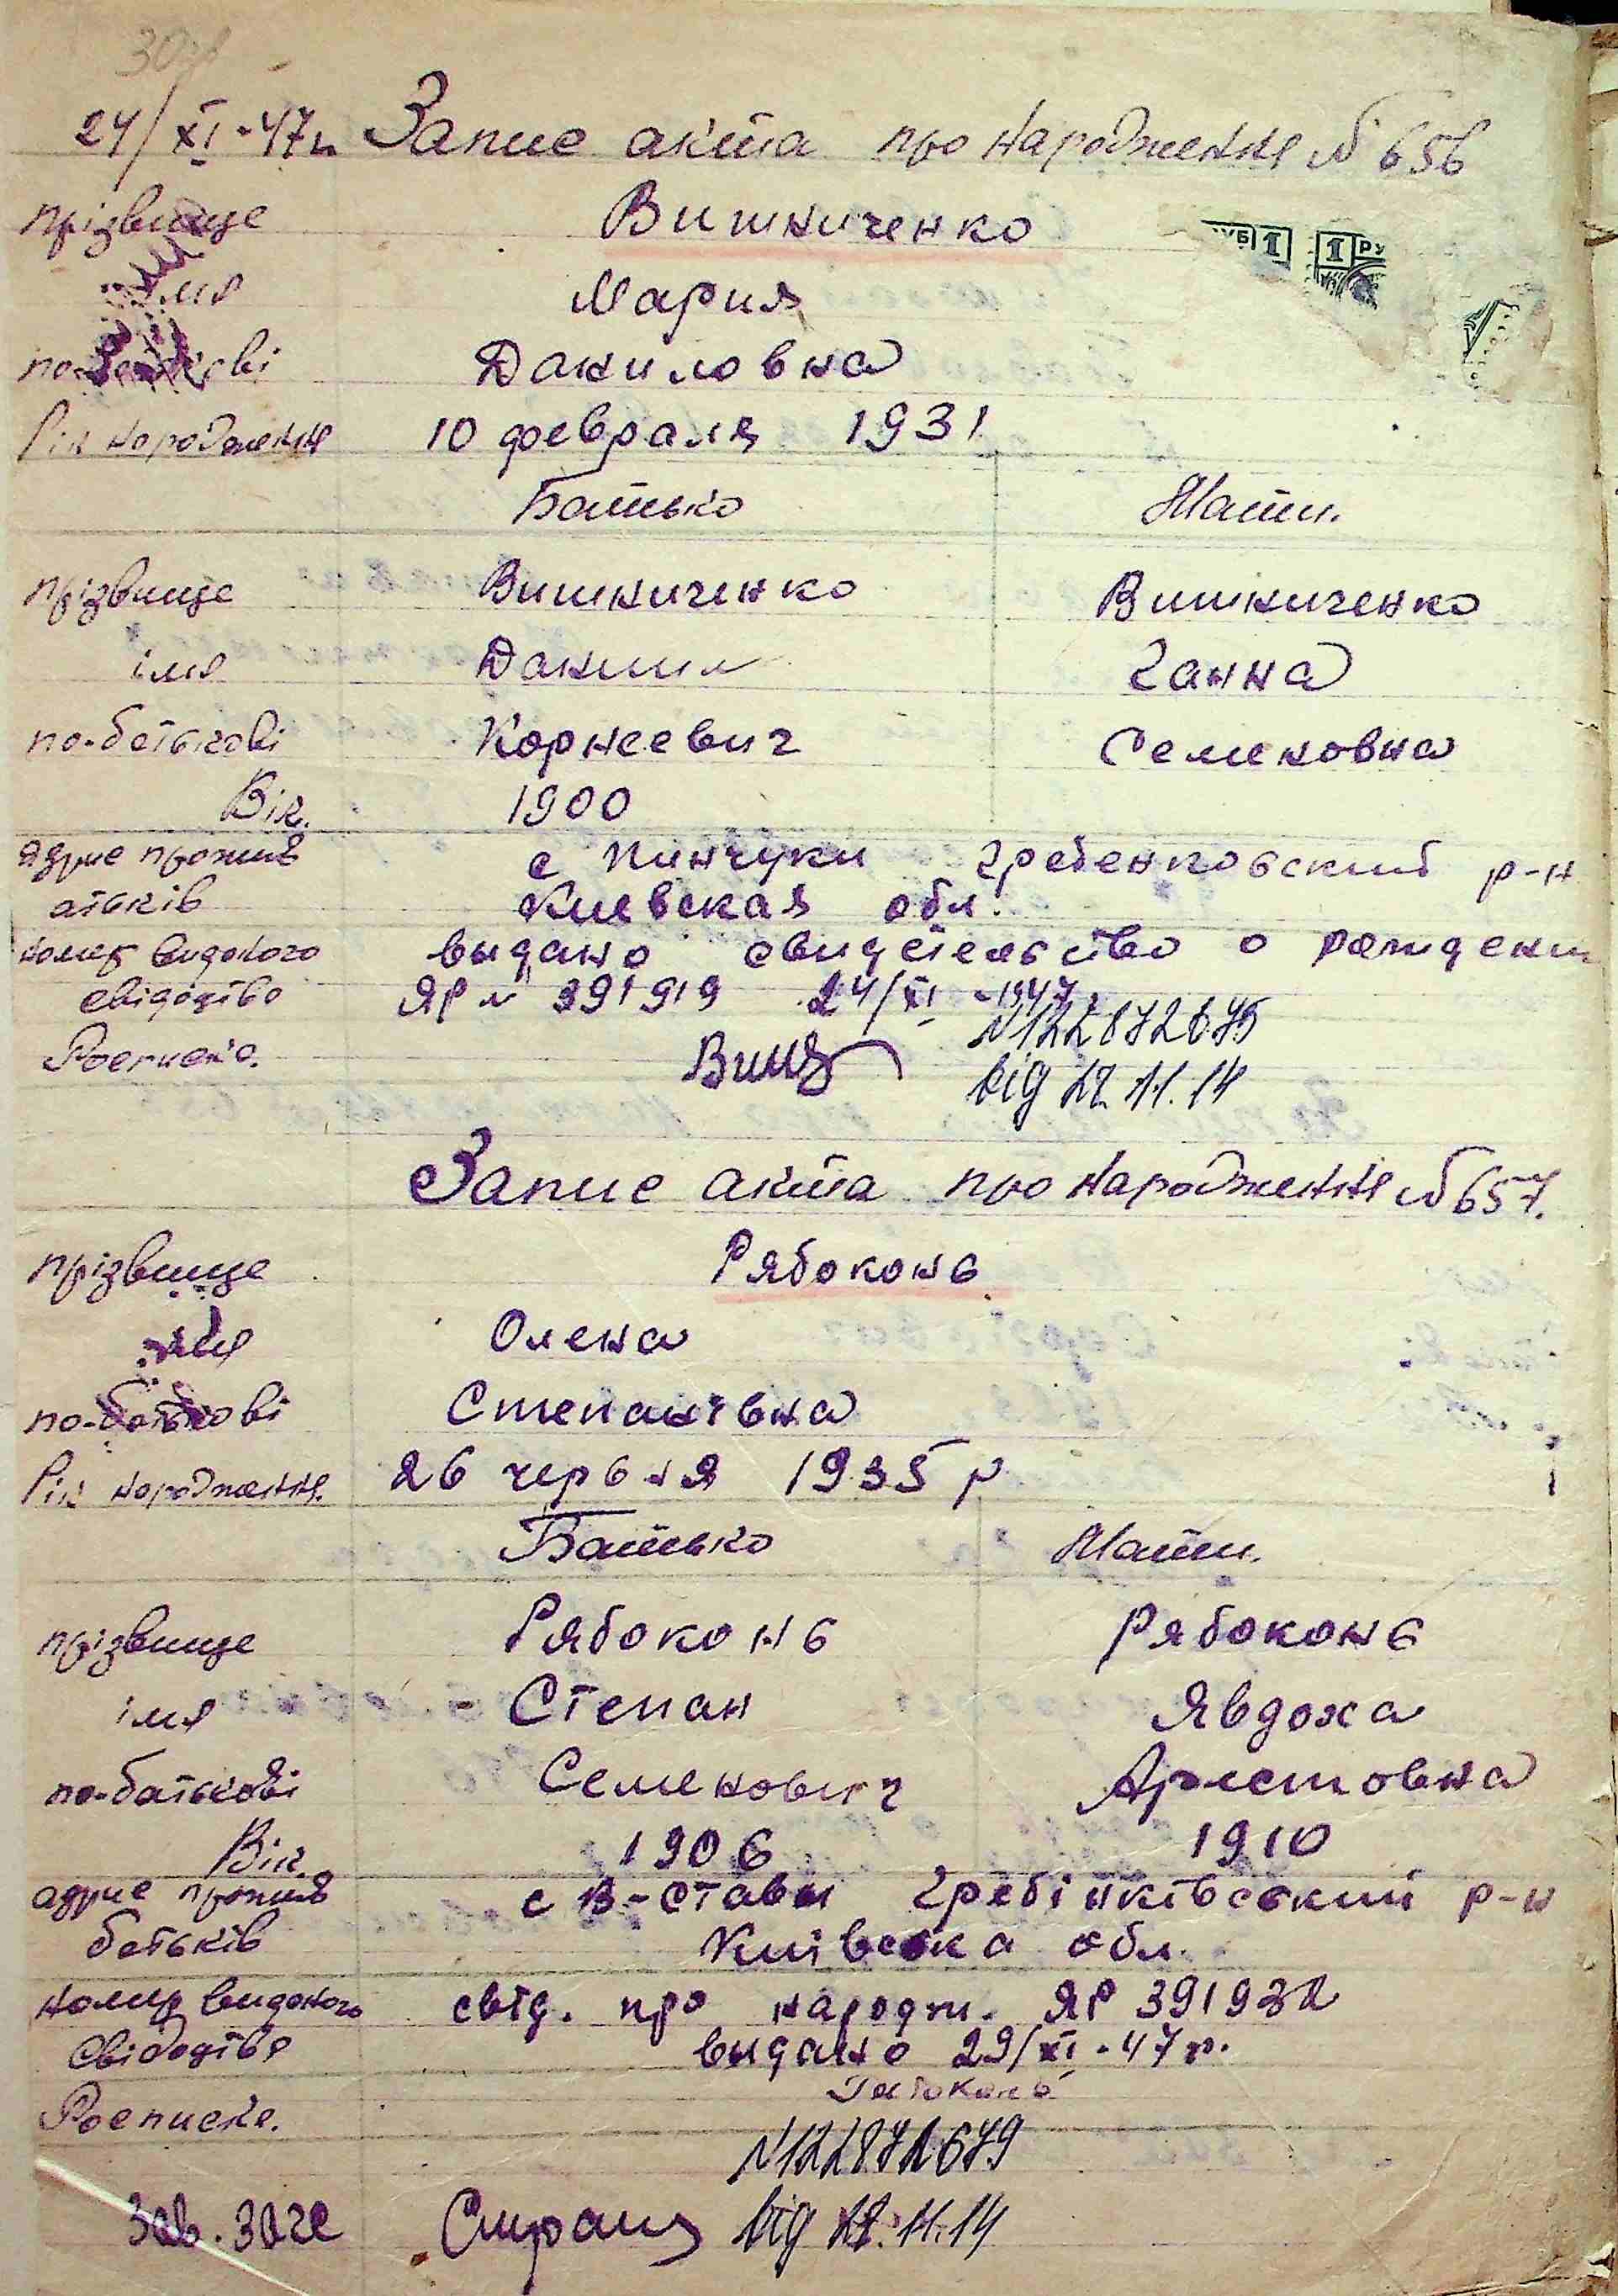 24/XI-47р. Запис акта про народження №656
прізвище Вишниченко
РУБ 1 1 РУ
імя Мария
по-батькові Даниловна
Рік народження 10 февраля 1931
Батько Мати.
прізвище Вишниченко Вишниченко
імя Данил Ганна
по-батькові Корнеевич Семеновна
Вік. 1900
адрис прожив с Пинчуки Гребенковский р-н
атьків Киевская обл.
номер виданого выдано свидетельство о рожидении
свідодтво ЯР № 391919 24/XI-1947
Росписка. Виш №122872675
від 27.11.14
Запис акта про народження №657.
прізвище Рябоконь
імя Олена
по-батькові Степанівна
Рік народження. 26 червня 1935 р
Батько Мати.
прізвище Рябоконь Рябоконь
імя Степан Явдоха
по-батькові Семенович Аристовна
Вік. 1906 1910
адрис прожив с В-Ставы Гребінківський р-н
батьків Київська обл.
номир виданого свід. про народж. ЯР 391932
свідодтва выдано 29/XI-47р.
Росписка. Рябоконь
№122872679
Зав. ЗАГС від 27.11.14